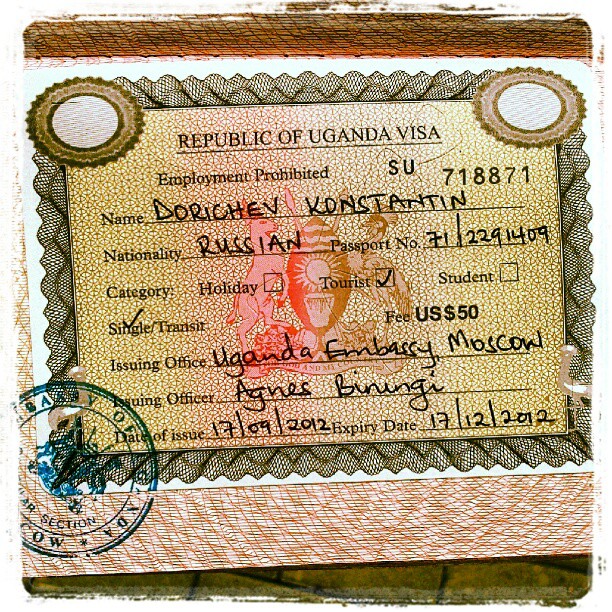 REPUBLIC OF UGANDA VISA
Employment Prohibited SU 718871
Name DORICHEV KONSTANTIN
Nationality RUSSIAN Passport No. 71/2291409
Category: Holiday Tourist ✓ Student
Single/Transit Fee US$50
Issuing Office Uganda Embassy, Moscow
Issuing Officer Agnes Binungi
Date of issue 17/09/2012 Expiry Date 17/12/2012
SECTION